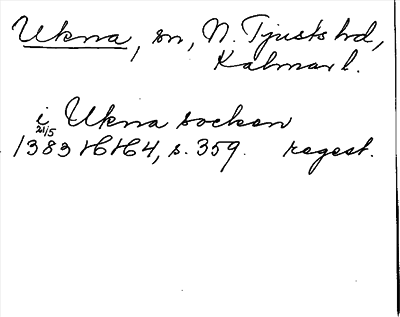 Ukna, sn, N. Tjusts hd,
Kalmar l.
i Ukna socken
21/5
1383 HH4, s. 359. regest.